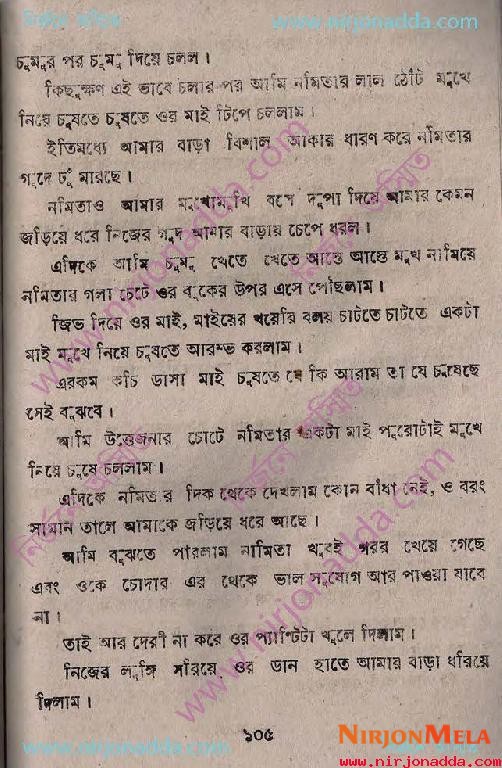 www.nirjonadda.com
চুমুর পর চুমু দিয়ে চলল।
কিছুক্ষণ এই ভাবে চলার পর আমি নমিতার লাল ঠোঁট মুখে
নিয়ে চুষতে চুষতে ওর মাই টিপে চললাম।
ইতিমধ্যে আমার বাড়া বিশাল আকার ধারণ করে নমিতার
গুদে ঢুঁ মারছে।
নমিতাও আমার মুখোমুখি বসে দুপা দিয়ে আমার কেমন
জড়িয়ে ধরে নিজের গুদ আমার বাড়ায় চেপে ধরল।
এদিকে আমি চুমু খেতে খেতে আস্তে আস্তে মুখ নামিয়ে
নমিতার গলা চেটে ওর বুকের উপর এসে পৌছলাম।
জিভ দিয়ে ওর মাই, মাইয়ের খয়েরি বলয় চাটতে চাটতে একটা
মাই মুখে নিয়ে চুষতে আরম্ভ করলাম।
এরকম কচি ডাসা মাই চুষতে যে কি আরাম তা যে চুষেছে
সেই বুঝবে।
আমি উত্তেজনার চোটে নমিতার একটা মাই পুরোটাই মুখে
নিয়ে চুষে চললাম।
এদিকে নমিতার দিক থেকে দেখলাম কোন বাঁধা নেই, ও বরং
সামান তালে আমাকে জড়িয়ে ধরে আছে।
আমি বুঝতে পারলাম নামিতা খুবই গরর খেয়ে গেছে
এবং ওকে চোদার এর থেকে ভাল সুযোগ আর পাওয়া যাবে
না।
তাই আর দেরী না করে ওর প্যান্টিটা খুলে দিলাম।
নিজের লুঙ্গি সরিয়ে ওর ডান হাতে আমার বাড়া ধরিয়ে
দিলাম।
১০৫
NIRJONMELA
www.nirjonadda.com
www.nirjonadda.com